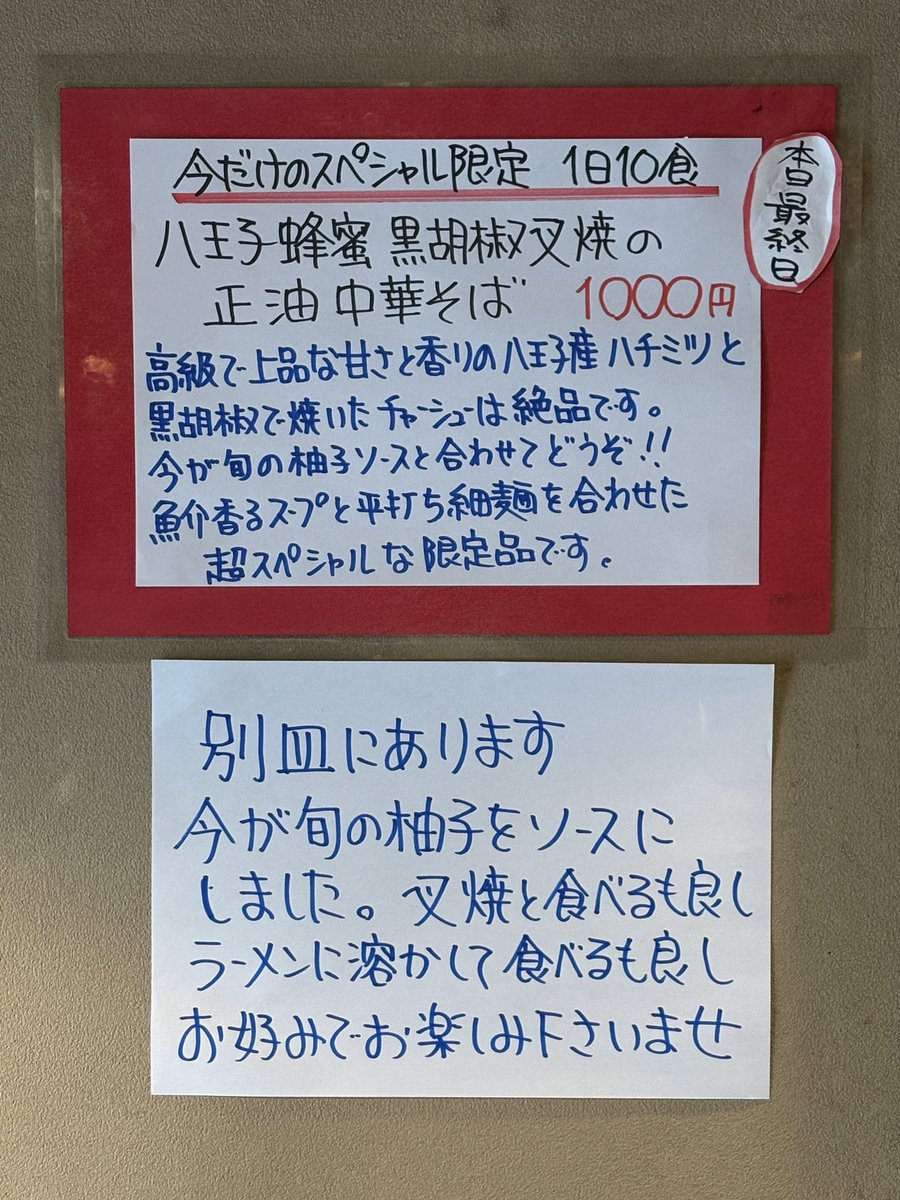 今だけのスペシャル限定 1日10食
本日最終日
八王子蜂蜜 黒胡椒叉焼の
正油中華そば 1000円
高級で上品な甘さと香りの八王子産ハチミツと
黒胡椒で焼いたチャーシューは絶品です。
今が旬の柚子ソースと合わせてどうぞ!!
魚介香るスープと平打ち細麺を合わせた
超スペシャルな限定品です。
別皿にあります
今が旬の柚子をソースに
しました。叉焼と食べるも良し
ラーメンに溶かして食べるも良し
お好みでお楽しみ下さいませ